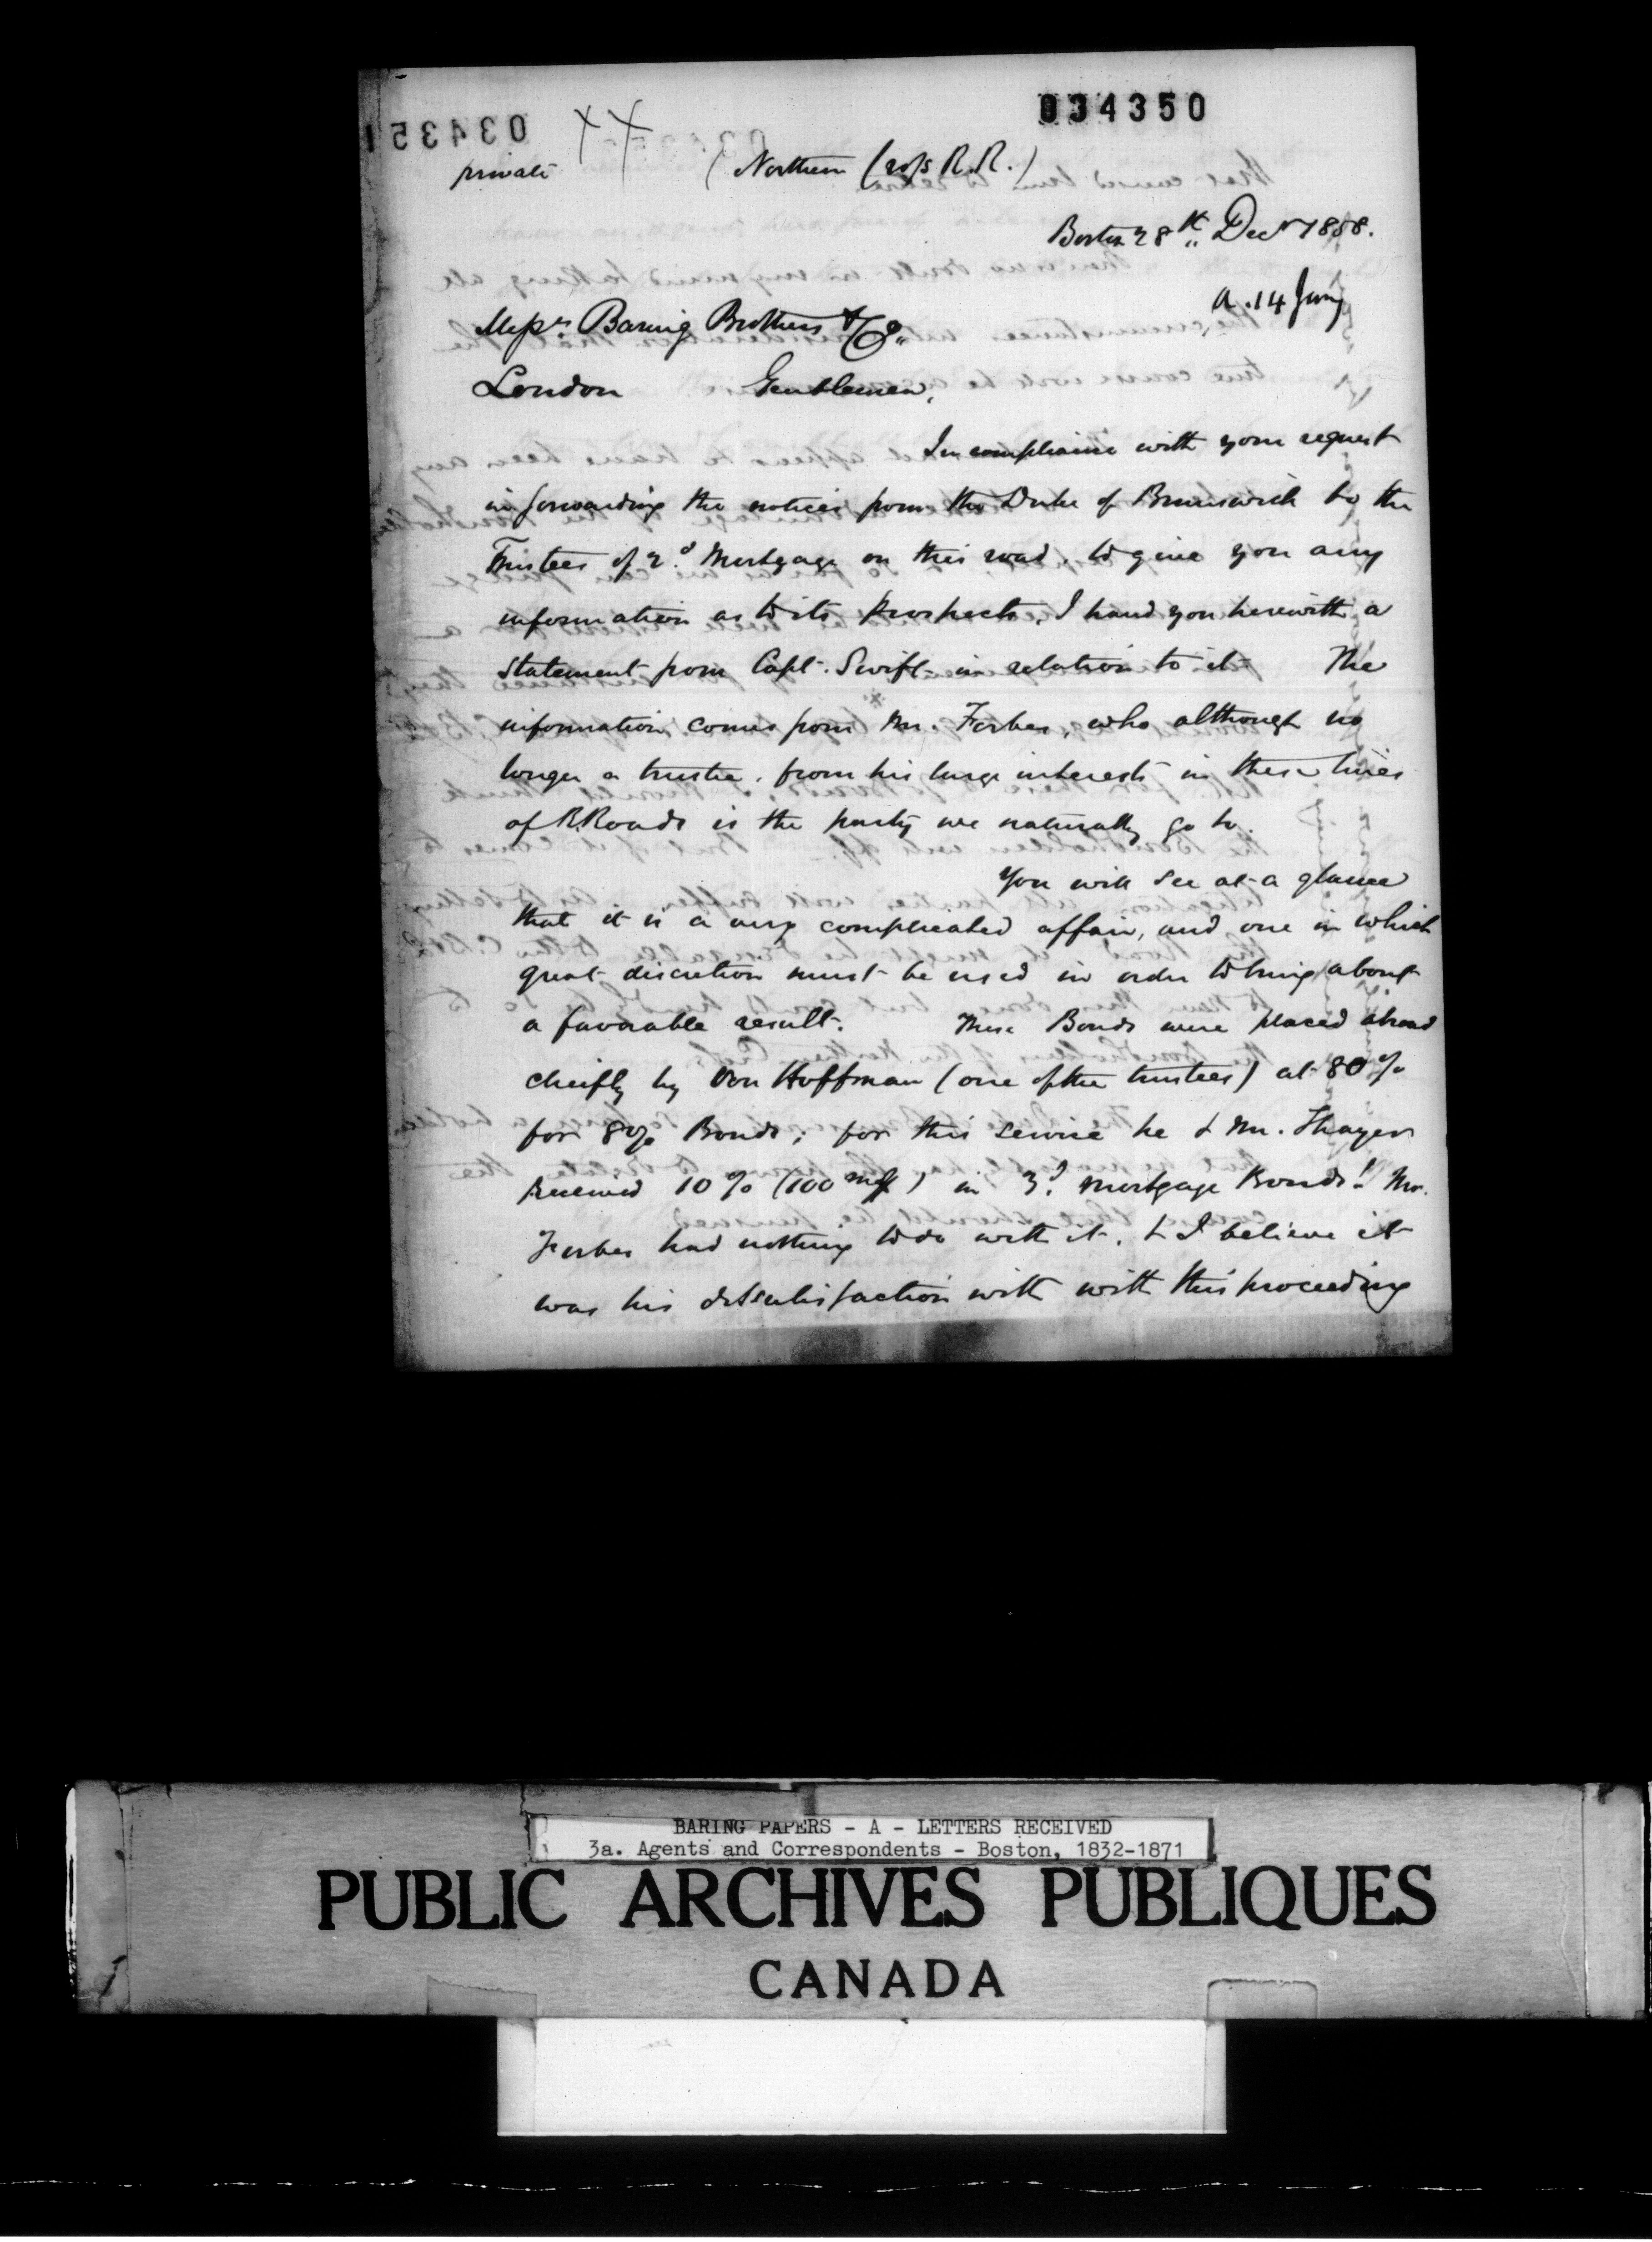 034350
034351
private
(Northern Cross R.R.)
Boston 28th Decr 1858.
a. 14 Jany
Messrs Baring Brothers & Co.
London Gentlemen,
In compliance with your request
in forwarding the notices from the Duke of Brunswick to the
Trustees of 2d Mortgage on this road, to give you any
information as to its prospects, I hand you herewith a
statement from Capt. Swift in relation to it The
information comes from Mr. Forbes, who although no
longer a trustee, from his large interests in these lines
of R.Roads is the party we naturally go to.
You will see at a glance
that it is a very complicated affair, and one in which
great discretion must be used in order to bring about
a favorable result. These Bonds were placed abroad
cheifly by Von Hoffman (one of the trustees) at 80%
for 8% Bonds; for this service he & Mr. Thayer
received 10% (100 m$) in 3d Mortgage Bonds! Mr.
Forbes had nothing to do with it, & I believe it
was his dissatisfaction with with this proceeding
BARING PAPERS - A - LETTERS RECEIVED
3a. Agents and Correspondents - Boston, 1832-1871
PUBLIC ARCHIVES PUBLIQUES
CANADA